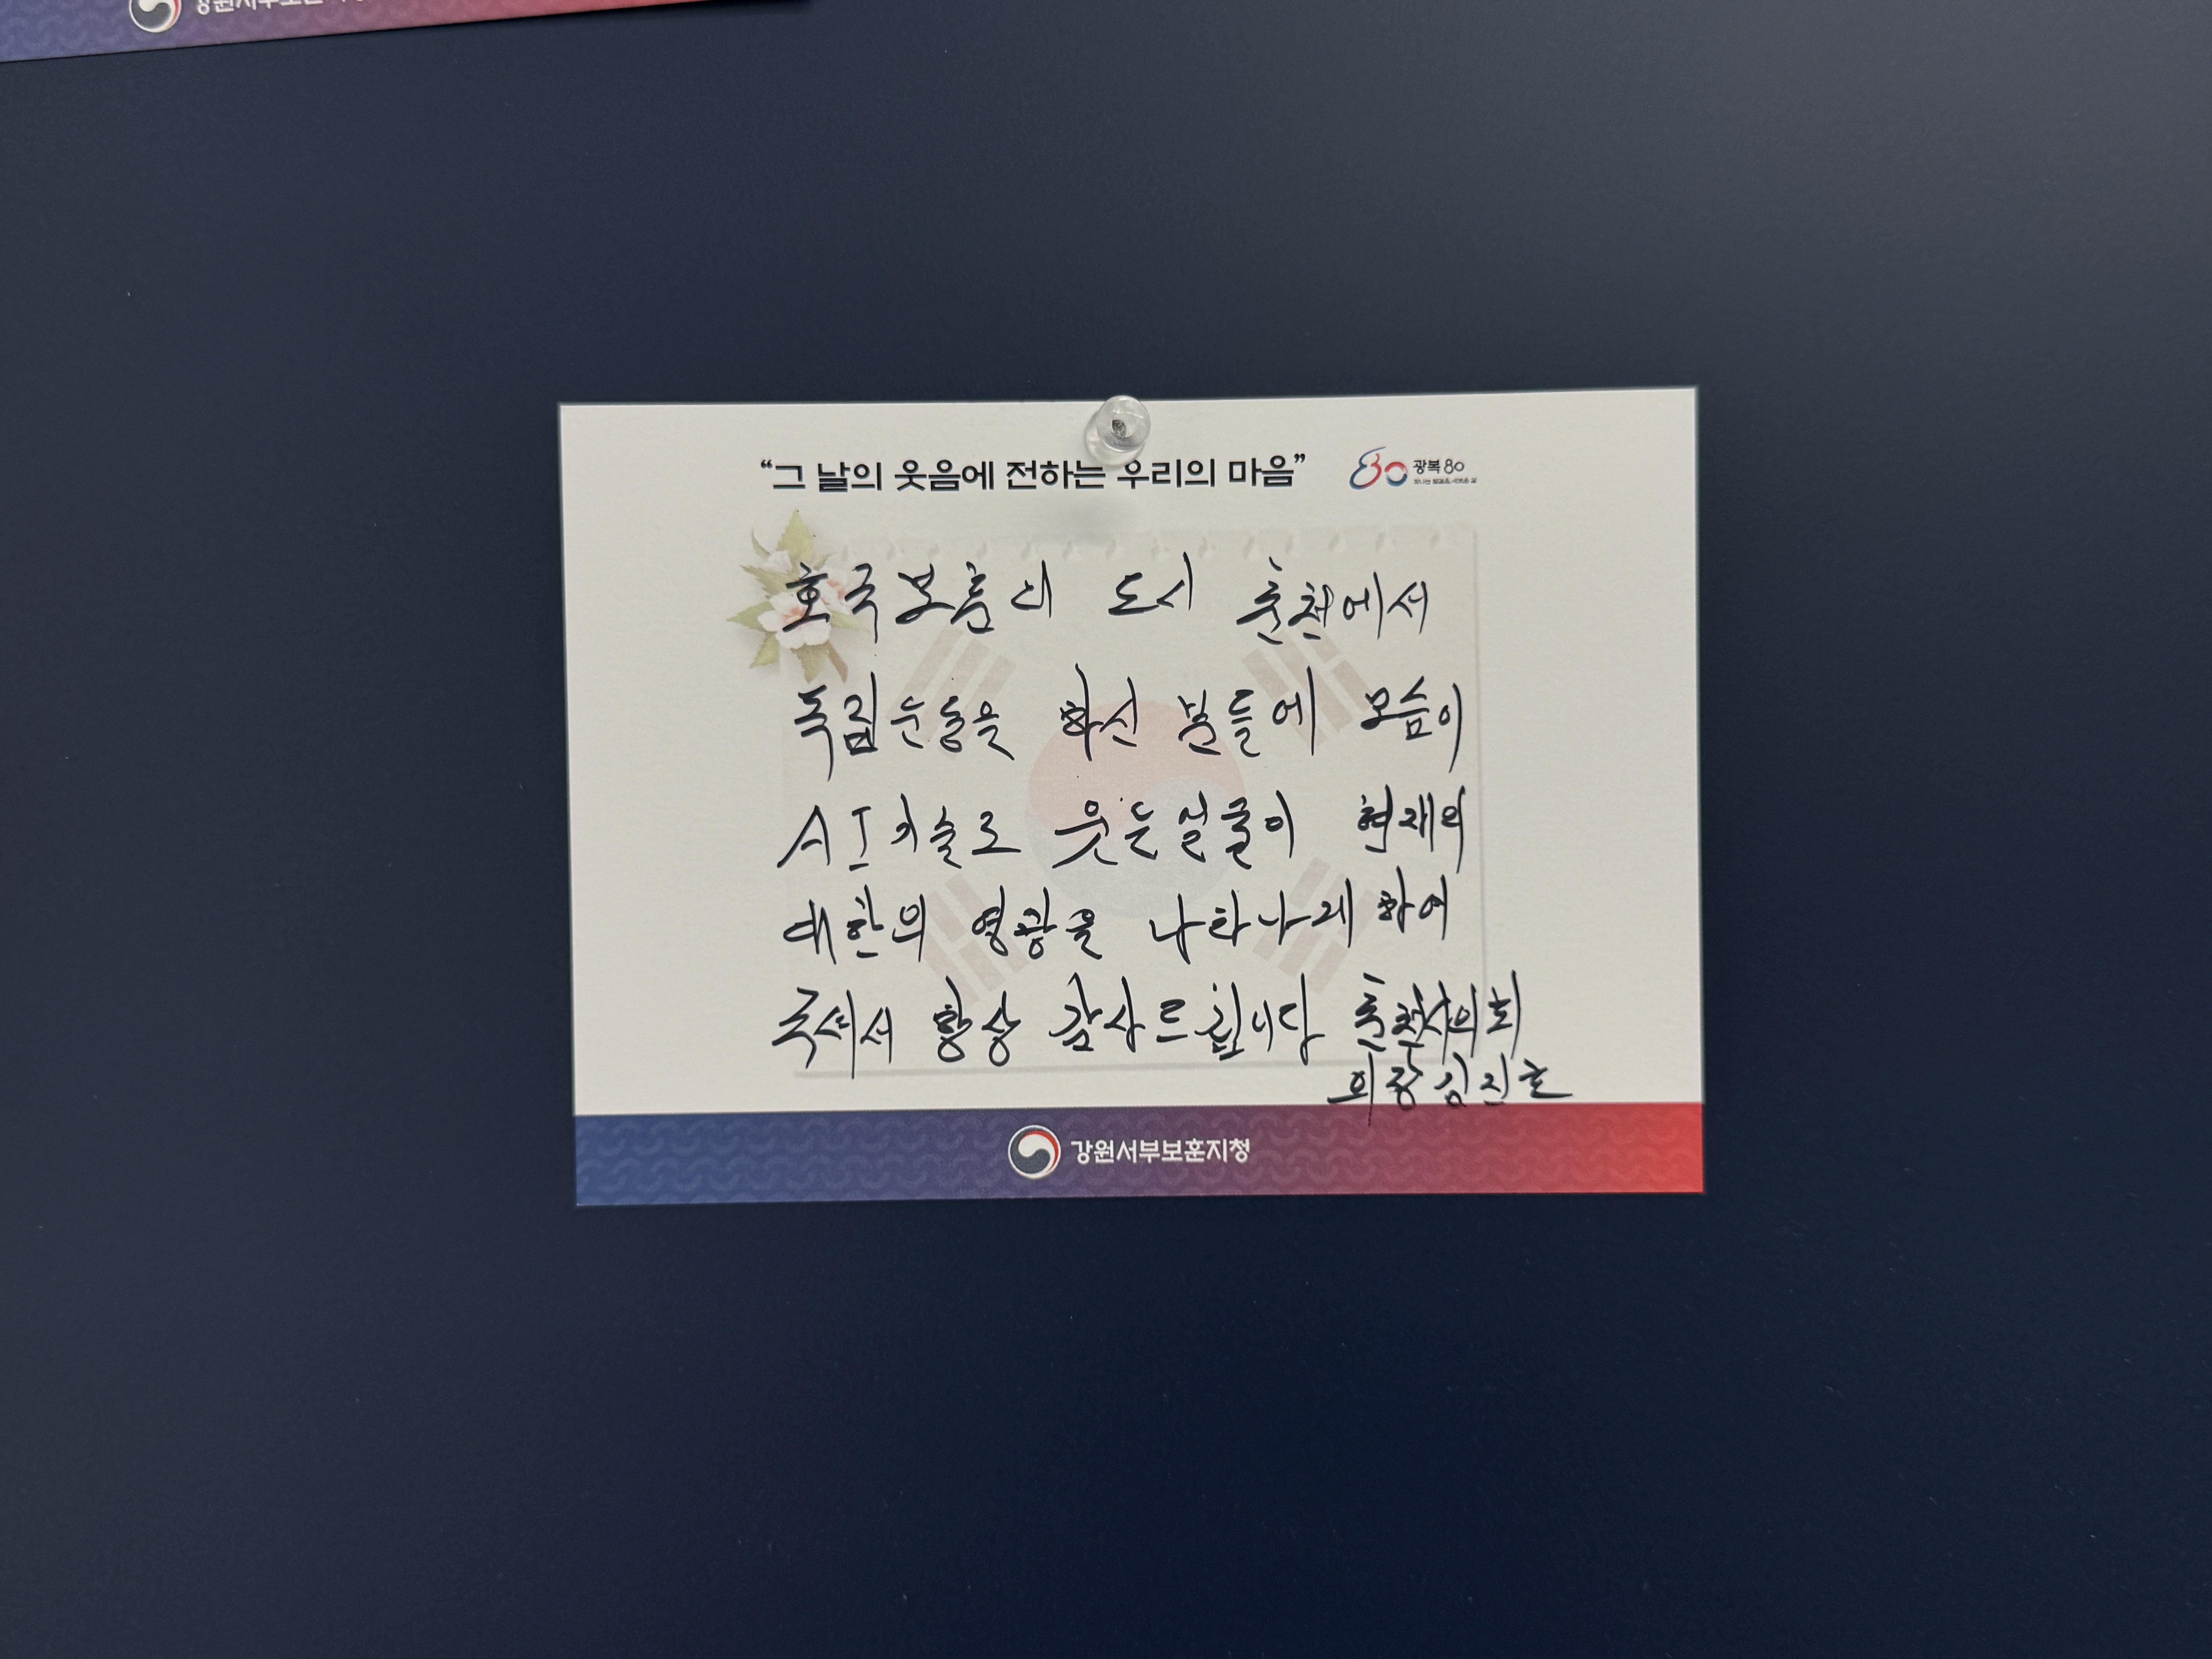 강원서부보훈지청
"그 날의 웃음에 전하는 우리의 마음"
광복 80
호국보훈의 도시 춘천에서
독립운동을 하신 분들에 모습이
AI 기술로 웃는얼굴이 현재의
대한의 영광을 나타나게 하여
주셔서 항상 감사드립니다 춘천시의회
의장 김진호
강원서부보훈지청